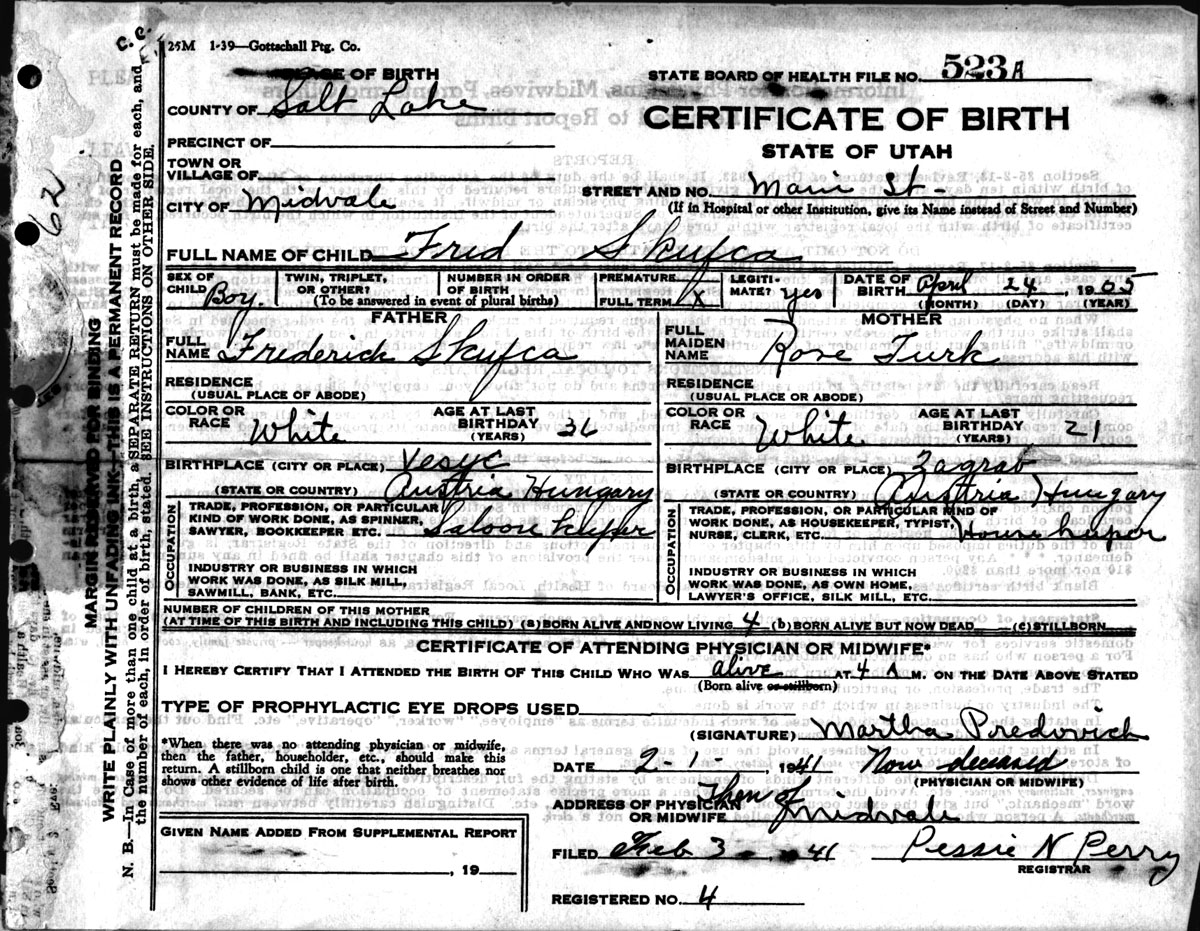 C. C.
25M 1-39—Gottschall Ptg. Co.
PLACE OF BIRTH
STATE BOARD OF HEALTH FILE NO. 523A
COUNTY OF Salt Lake
CERTIFICATE OF BIRTH
PRECINCT OF
STATE OF UTAH
TOWN OR
VILLAGE OF
STREET AND NO. Main St-
CITY OF Midvale
(If in Hospital or other Institution, give its Name instead of Street and Number)
FULL NAME OF CHILD Fred Skufca
SEX OF CHILD Boy.
TWIN, TRIPLET, OR OTHER?
NUMBER IN ORDER OF BIRTH
(To be answered in event of plural births)
PREMATURE
FULL TERM X
LEGITIMATE? yes
DATE OF BIRTH April 24, 1905
(MONTH) (DAY) (YEAR)
FATHER
FULL NAME Frederick Skufca
RESIDENCE
(USUAL PLACE OF ABODE)
COLOR OR RACE White
AGE AT LAST BIRTHDAY 36
(YEARS)
BIRTHPLACE (CITY OR PLACE) Vesyc
(STATE OR COUNTRY) Austria Hungary
OCCUPATION
TRADE, PROFESSION, OR PARTICULAR
KIND OF WORK DONE, AS SPINNER,
SAWYER, BOOKKEEPER ETC. Saloon keeper
INDUSTRY OR BUSINESS IN WHICH
WORK WAS DONE, AS SILK MILL,
SAWMILL, BANK, ETC.
MOTHER
FULL MAIDEN NAME Rose Turk
RESIDENCE
(USUAL PLACE OR ABODE)
COLOR OR RACE White
AGE AT LAST BIRTHDAY 21
(YEARS)
BIRTHPLACE (CITY OR PLACE) Zagrab
(STATE OR COUNTRY) Austria Hungary
OCCUPATION
TRADE, PROFESSION, OR PARTICULAR KIND OF
WORK DONE, AS HOUSEKEEPER, TYPIST,
NURSE, CLERK, ETC. House keeper
INDUSTRY OR BUSINESS IN WHICH
WORK WAS DONE, AS OWN HOME,
LAWYER'S OFFICE, SILK MILL, ETC.
NUMBER OF CHILDREN OF THIS MOTHER
(AT TIME OF THIS BIRTH AND INCLUDING THIS CHILD) (a) BORN ALIVE AND NOW LIVING 4 (b) BORN ALIVE BUT NOW DEAD (c) STILLBORN
CERTIFICATE OF ATTENDING PHYSICIAN OR MIDWIFE*
I HEREBY CERTIFY THAT I ATTENDED THE BIRTH OF THIS CHILD WHO WAS alive AT 4 A M. ON THE DATE ABOVE STATED
(Born alive or stillborn)
TYPE OF PROPHYLACTIC EYE DROPS USED
(SIGNATURE) Martha Predovich
*When there was no attending physician or midwife,
then the father, householder, etc., should make this
return. A stillborn child is one that neither breathes nor
shows other evidence of life after birth.
DATE 2-1-, 1941 Now deceased
(PHYSICIAN OR MIDWIFE)
ADDRESS OF PHYSICIAN
OR MIDWIFE Then of Midvale
GIVEN NAME ADDED FROM SUPPLEMENTAL REPORT
, 19
FILED Feb 3, 41 Pessie N Perry
REGISTRAR
REGISTERED NO. 4
62
MARGIN RESERVED FOR BINDING
WRITE PLAINLY WITH UNFADING INK—THIS IS A PERMANENT RECORD
N. B.—In Case of more than one child at a birth, a SEPARATE RETURN must be made for each, and
the number of each, in order of birth, stated. SEE INSTRUCTIONS ON OTHER SIDE.